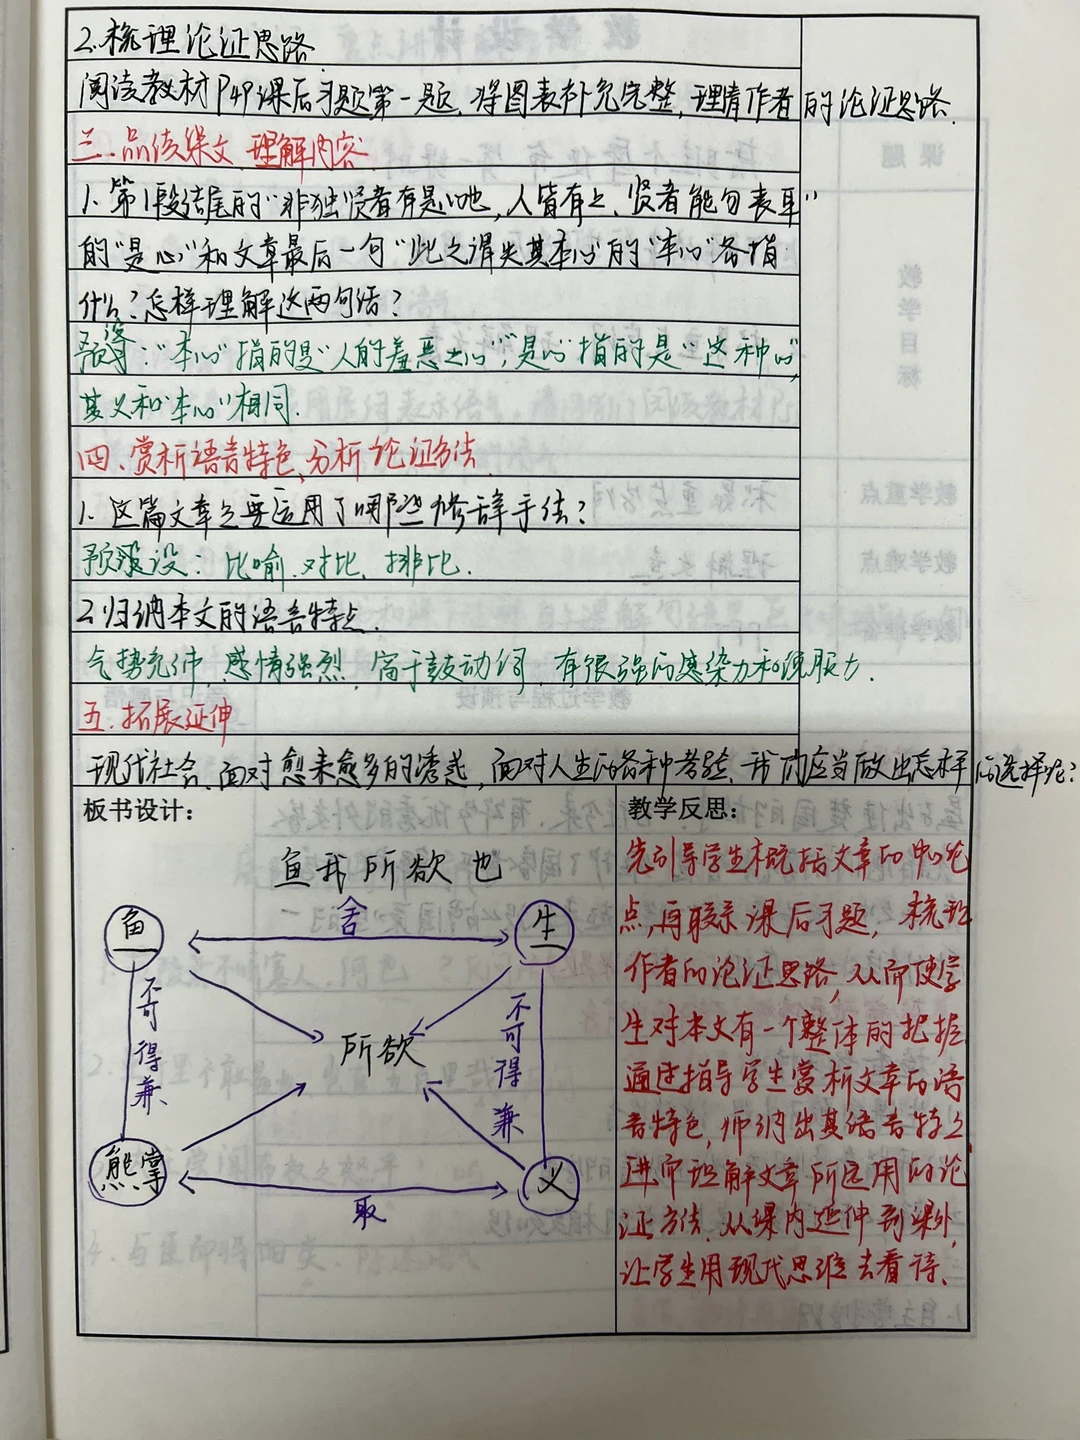 2.梳理论证思路.
阅读教材P49课后习题第一题,将图表补充完整,理清作者的论证思路.
三.品读课文,理解内容
1.第1段结尾的"非独贤者有是心也,人皆有之、贤者能勿丧耳"
的"是心"和文章最后一句"此之谓失其本心"的"本心"各指
什么?怎样理解这两句话?
预设:"本心"指的是"人的羞恶之心","是心"指的是"这种心",
其义和"本心"相同.
四、赏析语言特色、分析论证方法
1.这篇文章主要运用了哪些修辞手法?
预设:比喻.对比、排比.
2.归纳本文的语言特点.
气势充沛,感情强烈,富于鼓动词,有很强的感染力和说服力.
五.拓展延伸
现代社会,面对愈来愈多的诱惑,面对人生的各种考验、我们应当做出怎样的选择呢?
板书设计:
鱼我所欲也
鱼
舍
生
不可得兼
不可得兼
所欲
熊掌
取
义
教学反思:
先引导学生概括文章的中心论
点,再联系课后习题,梳理
作者的论证思路,从而使学
生对本文有一个整体的把握
通过指导学生赏析文章的语
言特色,归纳出其语言特点
进而理解文章所运用的论
证方法.从课内延伸到课外,
让学生用现代思维去看待、